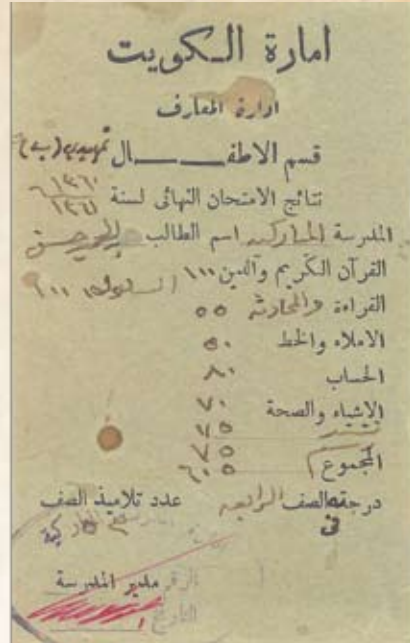 امارة الكويت
ادارة المعارف
قسم الاطفـــــال تمهيدي (ب)
نتائج الامتحان النهائى لسنة ١٣٦٠ ١٣٦١
المدرسة المباركيه اسم الطالب
القرآن الكريم والدين ١٠٠ السلوك ١٠٠
القراءة والمحادثه ٥٥
الاملاء والخط ٥٠
الحساب ٨٠
الاشياء والصحة ٧٠
٧٥
المجموع ٦٠٥
درجته فى الصف الرابعه عدد تلاميذ الصف
مدير المدرسة
الرقم
التاريخ